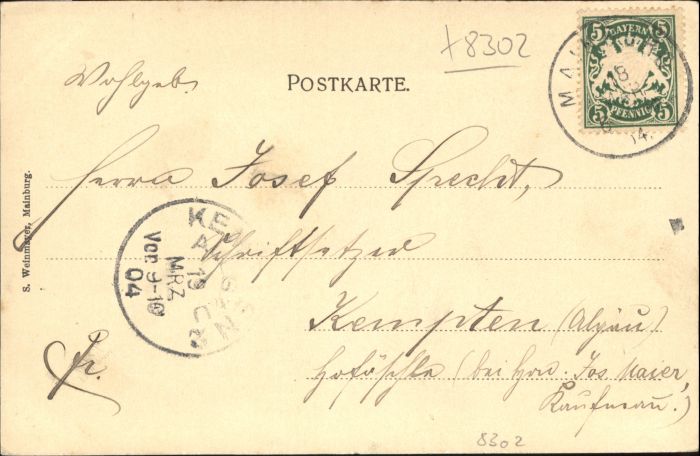 +8302
BAYERN
5 5
5 PFENNIG 5
MAINBURG
Wohlgeb.
POSTKARTE.
Herrn Josef Specht,
Schriftsetzer
Kempten (Algäu)
(bei Hrn. Jos Maier,
Kaufmann.)
Fr.
KEMPTEN
19
MRZ
Vor. 9-10
04
S. Weinmayer, Mainburg.
8302